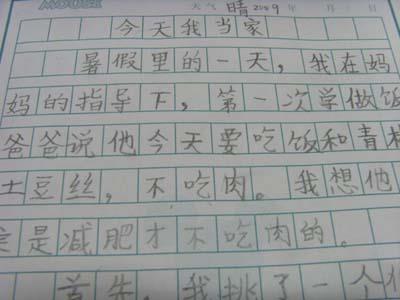 天气 晴 2009 年 月
今天我当家
暑假里的一天，我在妈
妈的指导下，第一次学做饭
爸爸说他今天要吃饭和青椒
土豆丝，不吃肉。我想他
定是减肥才不吃肉的。
首先，我挑了一个